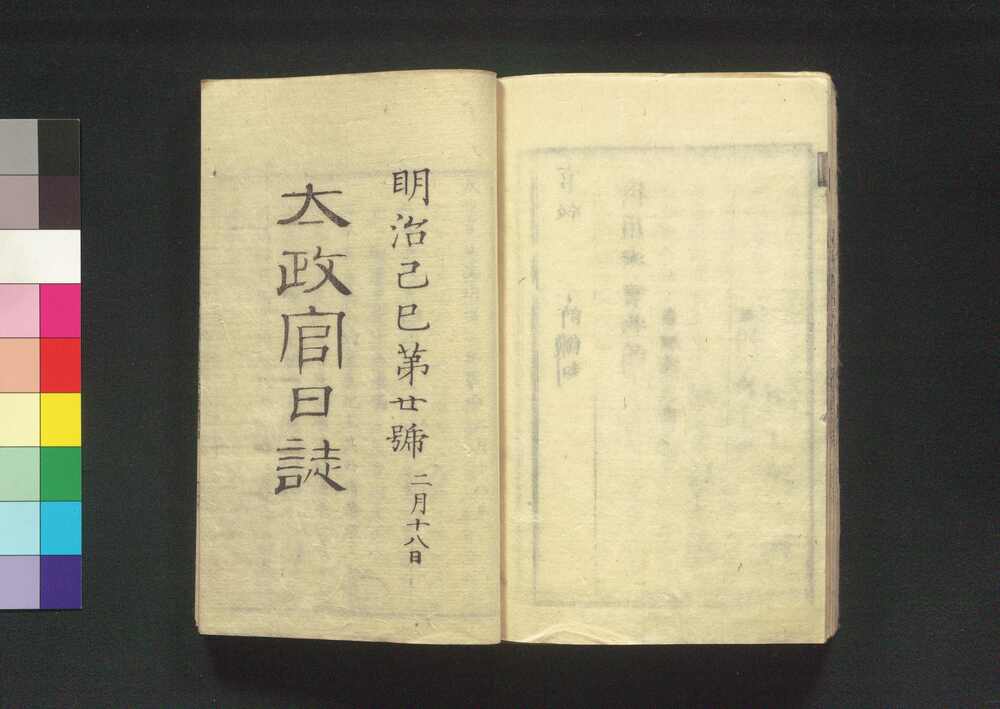 明治己巳第廿號 二月十八日
太政官日誌